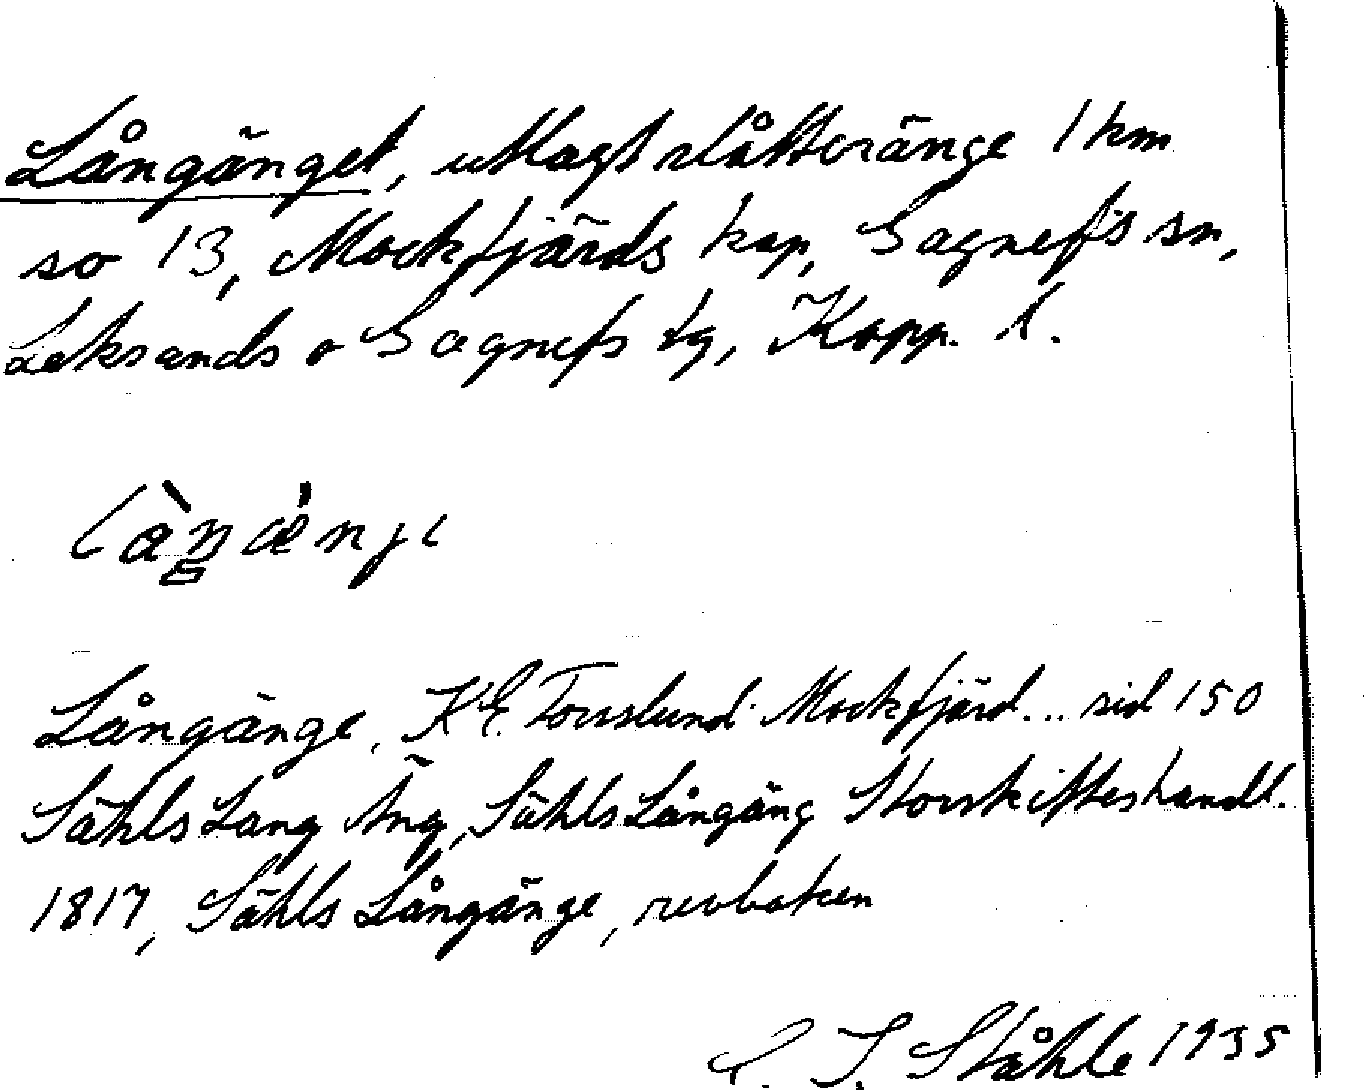 Långänget, utlagt slåtteränge 1 km
so 13, Mockfjärds kap, Gagnefs sn,
Leksands o Gagnefs tg, Kopp. l.
Långänge, K E Forsslund Mockfjärd... sid 150
Sähls Lang Äng, Sähls Långäng Storskifteshandl.
1817, Sähls Långänge, revboken
C. I. Ståhle 1935